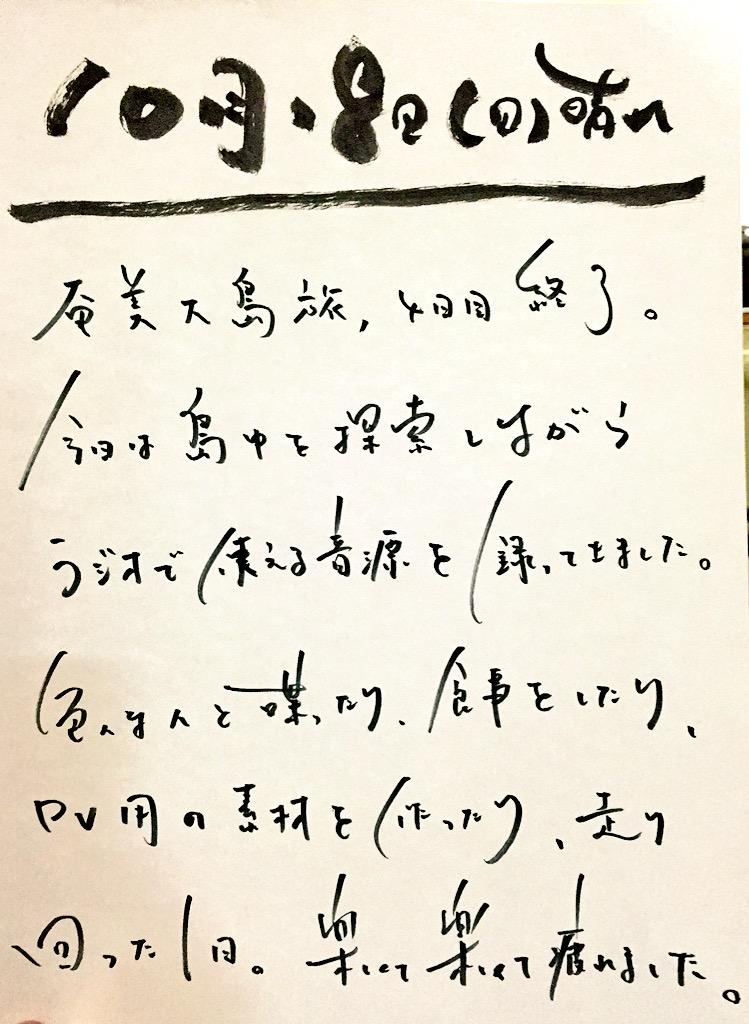 10月、8日(日)晴れ
奄美大島旅、4日目終了。
今日は島中を探索しながら
ラジオで使える音源を録ってきました。
色んな人と喋ったり、食事をしたり、
PV用の素材を作ったり、走り
回った1日。楽しくて楽しくて疲れました。